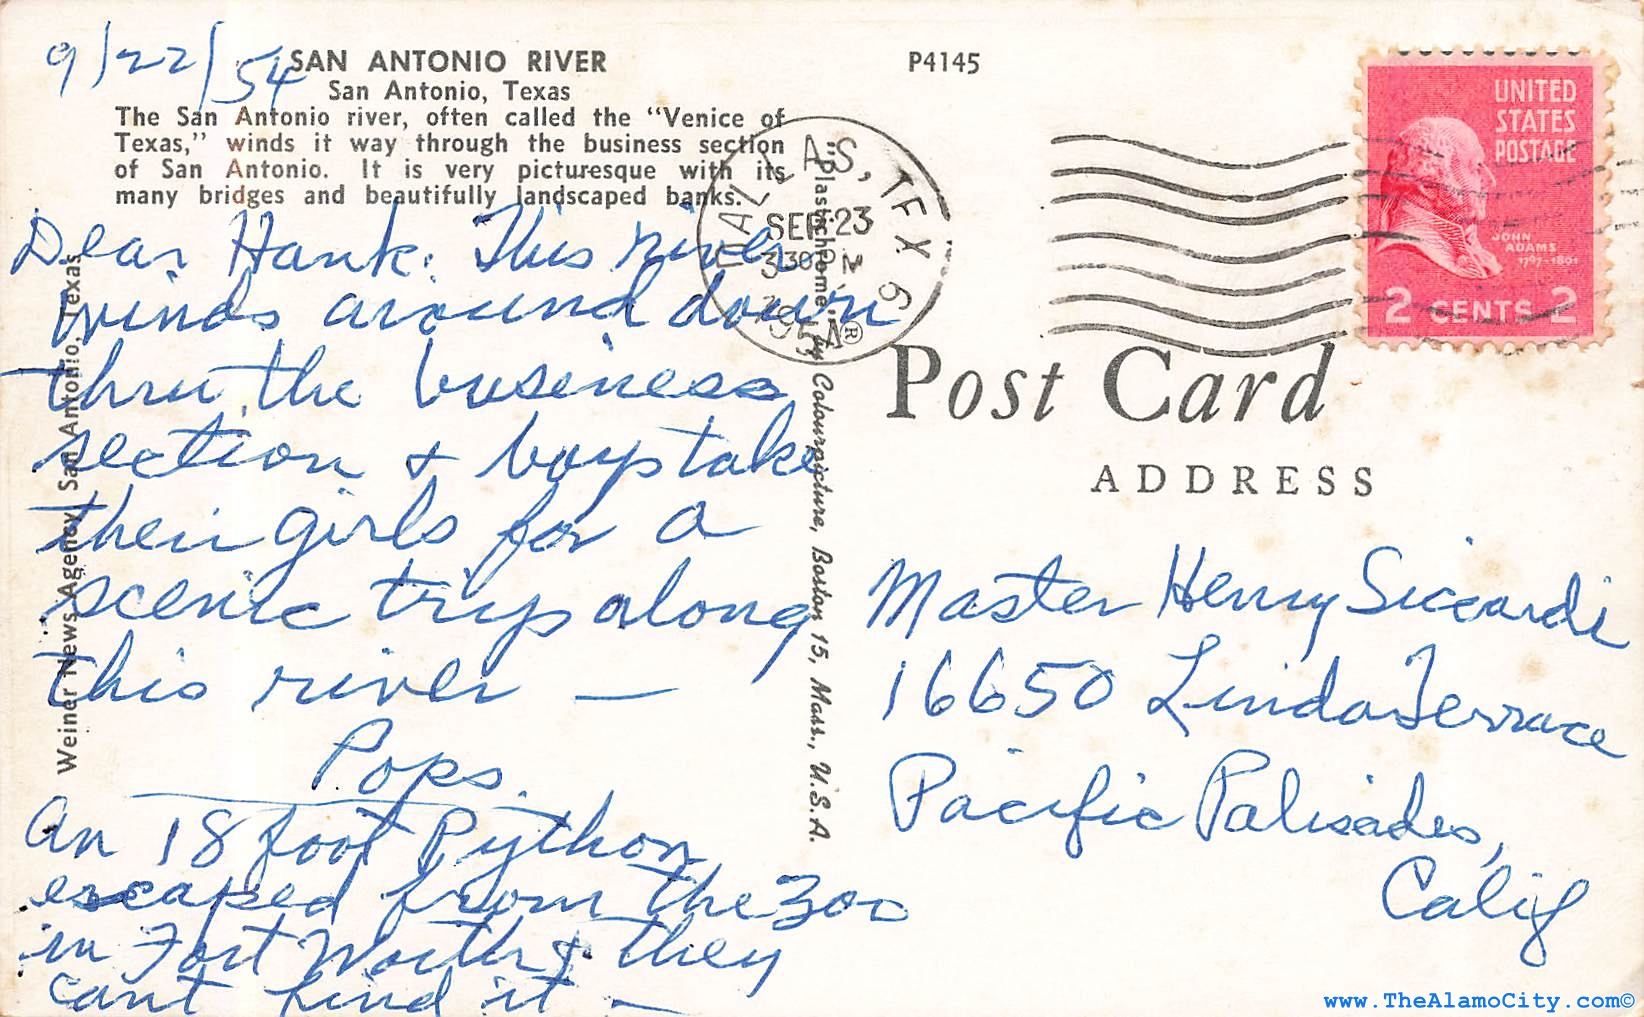 9/22/54
SAN ANTONIO RIVER
San Antonio, Texas
The San Antonio river, often called the "Venice of
Texas," winds it way through the business section
of San Antonio. It is very picturesque with its
many bridges and beautifully landscaped banks.
P4145
Dear Hank: This river
winds around down
thru the business
section & boys take
their girls for a
scenic trip along
this river —
Pops.
An 18 foot Python
escaped from the zoo
in Fort Worth & they
cant find it —
Weiner News Agency, San Antonio, Texas
"Plastichrome" by Colourpicture, Boston 15, Mass., U.S.A.
®
DALLAS, TEX 9
SEP 23
330 PM
1954
UNITED
STATES
POSTAGE
JOHN
ADAMS
1797-1801
2 CENTS 2
Post Card
ADDRESS
Master Henry Siccardi
16650 Linda Terrace
Pacific Palisades,
Calif
www.TheAlamoCity.com©